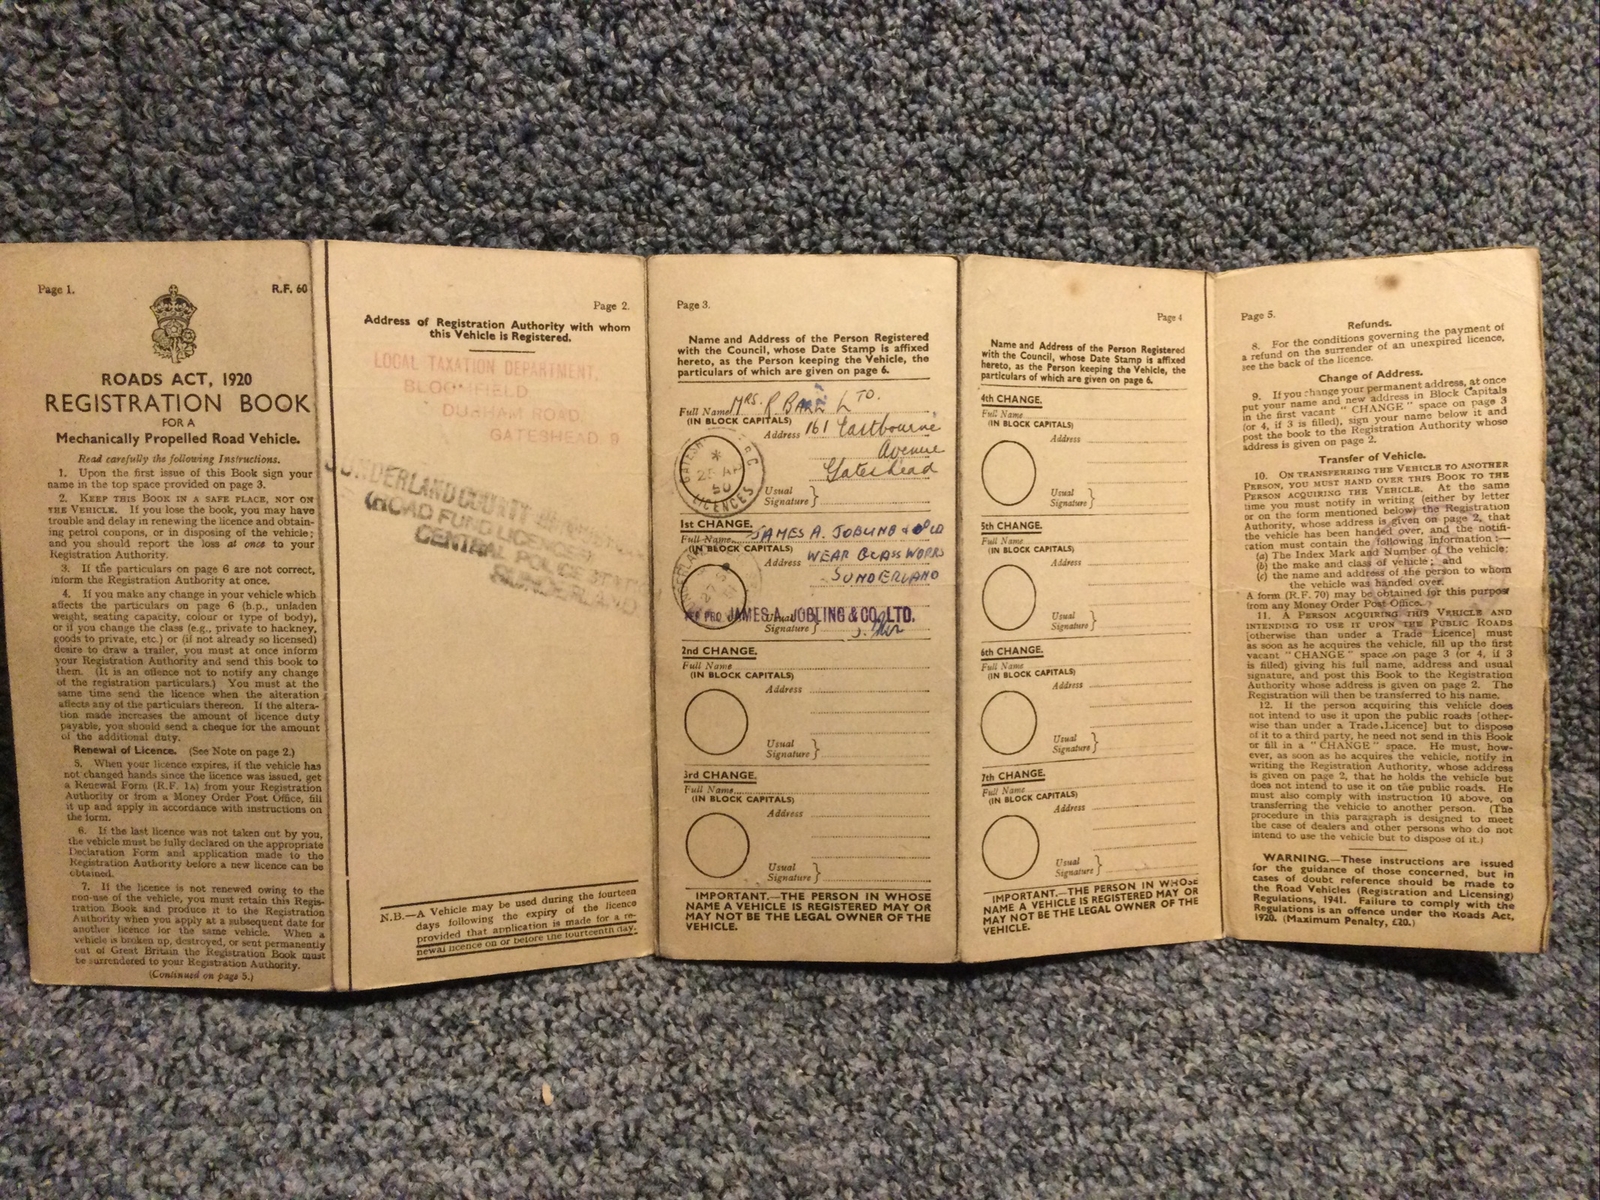 Page 1.
R.F. 60
ROADS ACT, 1920
REGISTRATION BOOK
FOR A
Mechanically Propelled Road Vehicle.
Read carefully the following Instructions.
1. Upon the first issue of this Book sign your
name in the top space provided on page 3.
2. KEEP THIS BOOK IN A SAFE PLACE, NOT ON
THE VEHICLE. If you lose the book, you may have
trouble and delay in renewing the licence and obtain-
ing petrol coupons, or in disposing of the vehicle;
and you should report the loss at once to your
Registration Authority.
3. If the particulars on page 6 are not correct,
inform the Registration Authority at once.
4. If you make any change in your vehicle which
affects the particulars on page 6 (h.p., unladen
weight, seating capacity, colour or type of body),
or if you change the class (e.g., private to hackney,
goods to private, etc.) or (if not already so licensed)
desire to draw a trailer, you must at once inform
your Registration Authority and send this book to
them. (It is an offence not to notify any change
of the registration particulars.) You must at the
same time send the licence when the alteration
affects any of the particulars thereon. If the altera-
tion made increases the amount of licence duty
payable, you should send a cheque for the amount
of the additional duty.
Renewal of Licence. (See Note on page 2.)
5. When your licence expires, if the vehicle has
not changed hands since the licence was issued, get
a Renewal Form (R.F. 1A) from your Registration
Authority or from a Money Order Post Office, fill
it up and apply in accordance with instructions on
the form.
6. If the last licence was not taken out by you,
the vehicle must be fully declared on the appropriate
Declaration Form and application made to the
Registration Authority before a new licence can be
obtained.
7. If the licence is not renewed owing to the
non-use of the vehicle, you must retain this Regis-
tration Book and produce it to the Registration
Authority when you apply at a subsequent date for
another licence for the same vehicle. When a
vehicle is broken up, destroyed, or sent permanently
out of Great Britain the Registration Book must
be surrendered to your Registration Authority.
(Continued on page 5.)
Page 2.
Address of Registration Authority with whom
this Vehicle is Registered.
LOCAL TAXATION DEPARTMENT,
BLOOMFIELD
DURHAM ROAD
GATESHEAD 9
SUNDERLAND COUNTY
ROAD FUND LICENCE
CENTRAL POLICE
SUNDERLAND
N.B.—A Vehicle may be used during the fourteen
days following the expiry of the licence
provided that application is made for a re-
newal licence on or before the fourteenth day.
Page 3.
Name and Address of the Person Registered
with the Council, whose Date Stamp is affixed
hereto, as the Person keeping the Vehicle, the
particulars of which are given on page 6.
Full Name MRS. R LTD.
(IN BLOCK CAPITALS)
Address 161 Eastbourne
Avenue
Gateshead
LICENCES
Usual
Signature
1st CHANGE.
Full Name JAMES A. JOBLING & CO LTD
(IN BLOCK CAPITALS)
Address WEAR GLASS WORKS
SUNDERLAND
PER PRO. JAMES A. JOBLING & CO. LTD.
Usual
Signature
2nd CHANGE.
Full Name
(IN BLOCK CAPITALS)
Address
Usual
Signature
3rd CHANGE.
Full Name
(IN BLOCK CAPITALS)
Address
Usual
Signature
IMPORTANT.—THE PERSON IN WHOSE
NAME A VEHICLE IS REGISTERED MAY OR
MAY NOT BE THE LEGAL OWNER OF THE
VEHICLE.
Page 4
Name and Address of the Person Registered
with the Council, whose Date Stamp is affixed
hereto, as the Person keeping the Vehicle, the
particulars of which are given on page 6.
4th CHANGE.
Full Name
(IN BLOCK CAPITALS)
Address
Usual
Signature
5th CHANGE.
Full Name
(IN BLOCK CAPITALS)
Address
Usual
Signature
6th CHANGE.
Full Name
(IN BLOCK CAPITALS)
Address
Usual
Signature
7th CHANGE.
Full Name
(IN BLOCK CAPITALS)
Address
Usual
Signature
IMPORTANT.—THE PERSON IN WHOSE
NAME A VEHICLE IS REGISTERED MAY OR
MAY NOT BE THE LEGAL OWNER OF THE
VEHICLE.
Page 5.
Refunds.
8. For the conditions governing the payment of
a refund on the surrender of an unexpired licence,
see the back of the licence.
Change of Address.
9. If you change your permanent address, at once
put your name and new address in Block Capitals
in the first vacant "CHANGE" space on page 3
(or 4, if 3 is filled), sign your name below it and
post the book to the Registration Authority whose
address is given on page 2.
Transfer of Vehicle.
10. ON TRANSFERRING THE VEHICLE TO ANOTHER
PERSON, YOU MUST HAND OVER THIS BOOK TO THE
PERSON ACQUIRING THE VEHICLE. At the same
time you must notify in writing (either by letter
or on the form mentioned below) the Registration
Authority, whose address is given on page 2, that
the vehicle has been handed over, and the notifi-
cation must contain the following information:—
(a) The Index Mark and Number of the vehicle;
(b) the make and class of vehicle; and
(c) the name and address of the person to whom
the vehicle was handed over.
A form (R.F. 70) may be obtained for this purpose
from any Money Order Post Office.
11. A PERSON ACQUIRING THIS VEHICLE AND
INTENDING TO USE IT UPON THE PUBLIC ROADS
[otherwise than under a Trade Licence] must
as soon as he acquires the vehicle, fill up the first
vacant "CHANGE" space on page 3 (or 4, if 3
is filled) giving his full name, address and usual
signature, and post this Book to the Registration
Authority whose address is given on page 2. The
Registration will then be transferred to his name.
12. If the person acquiring this vehicle does
not intend to use it upon the public roads [other-
wise than under a Trade Licence] but to dispose
of it to a third party, he need not send in this Book
or fill in a "CHANGE" space. He must, how-
ever, as soon as he acquires the vehicle, notify in
writing the Registration Authority, whose address
is given on page 2, that he holds the vehicle but
does not intend to use it on the public roads. He
must also comply with instruction 10 above, on
transferring the vehicle to another person. (The
procedure in this paragraph is designed to meet
the case of dealers and other persons who do not
intend to use the vehicle but to dispose of it.)
WARNING.—These instructions are issued
for the guidance of those concerned, but in
cases of doubt reference should be made to
the Road Vehicles (Registration and Licensing)
Regulations, 1941. Failure to comply with the
Regulations is an offence under the Roads Act,
1920. (Maximum Penalty, £20.)